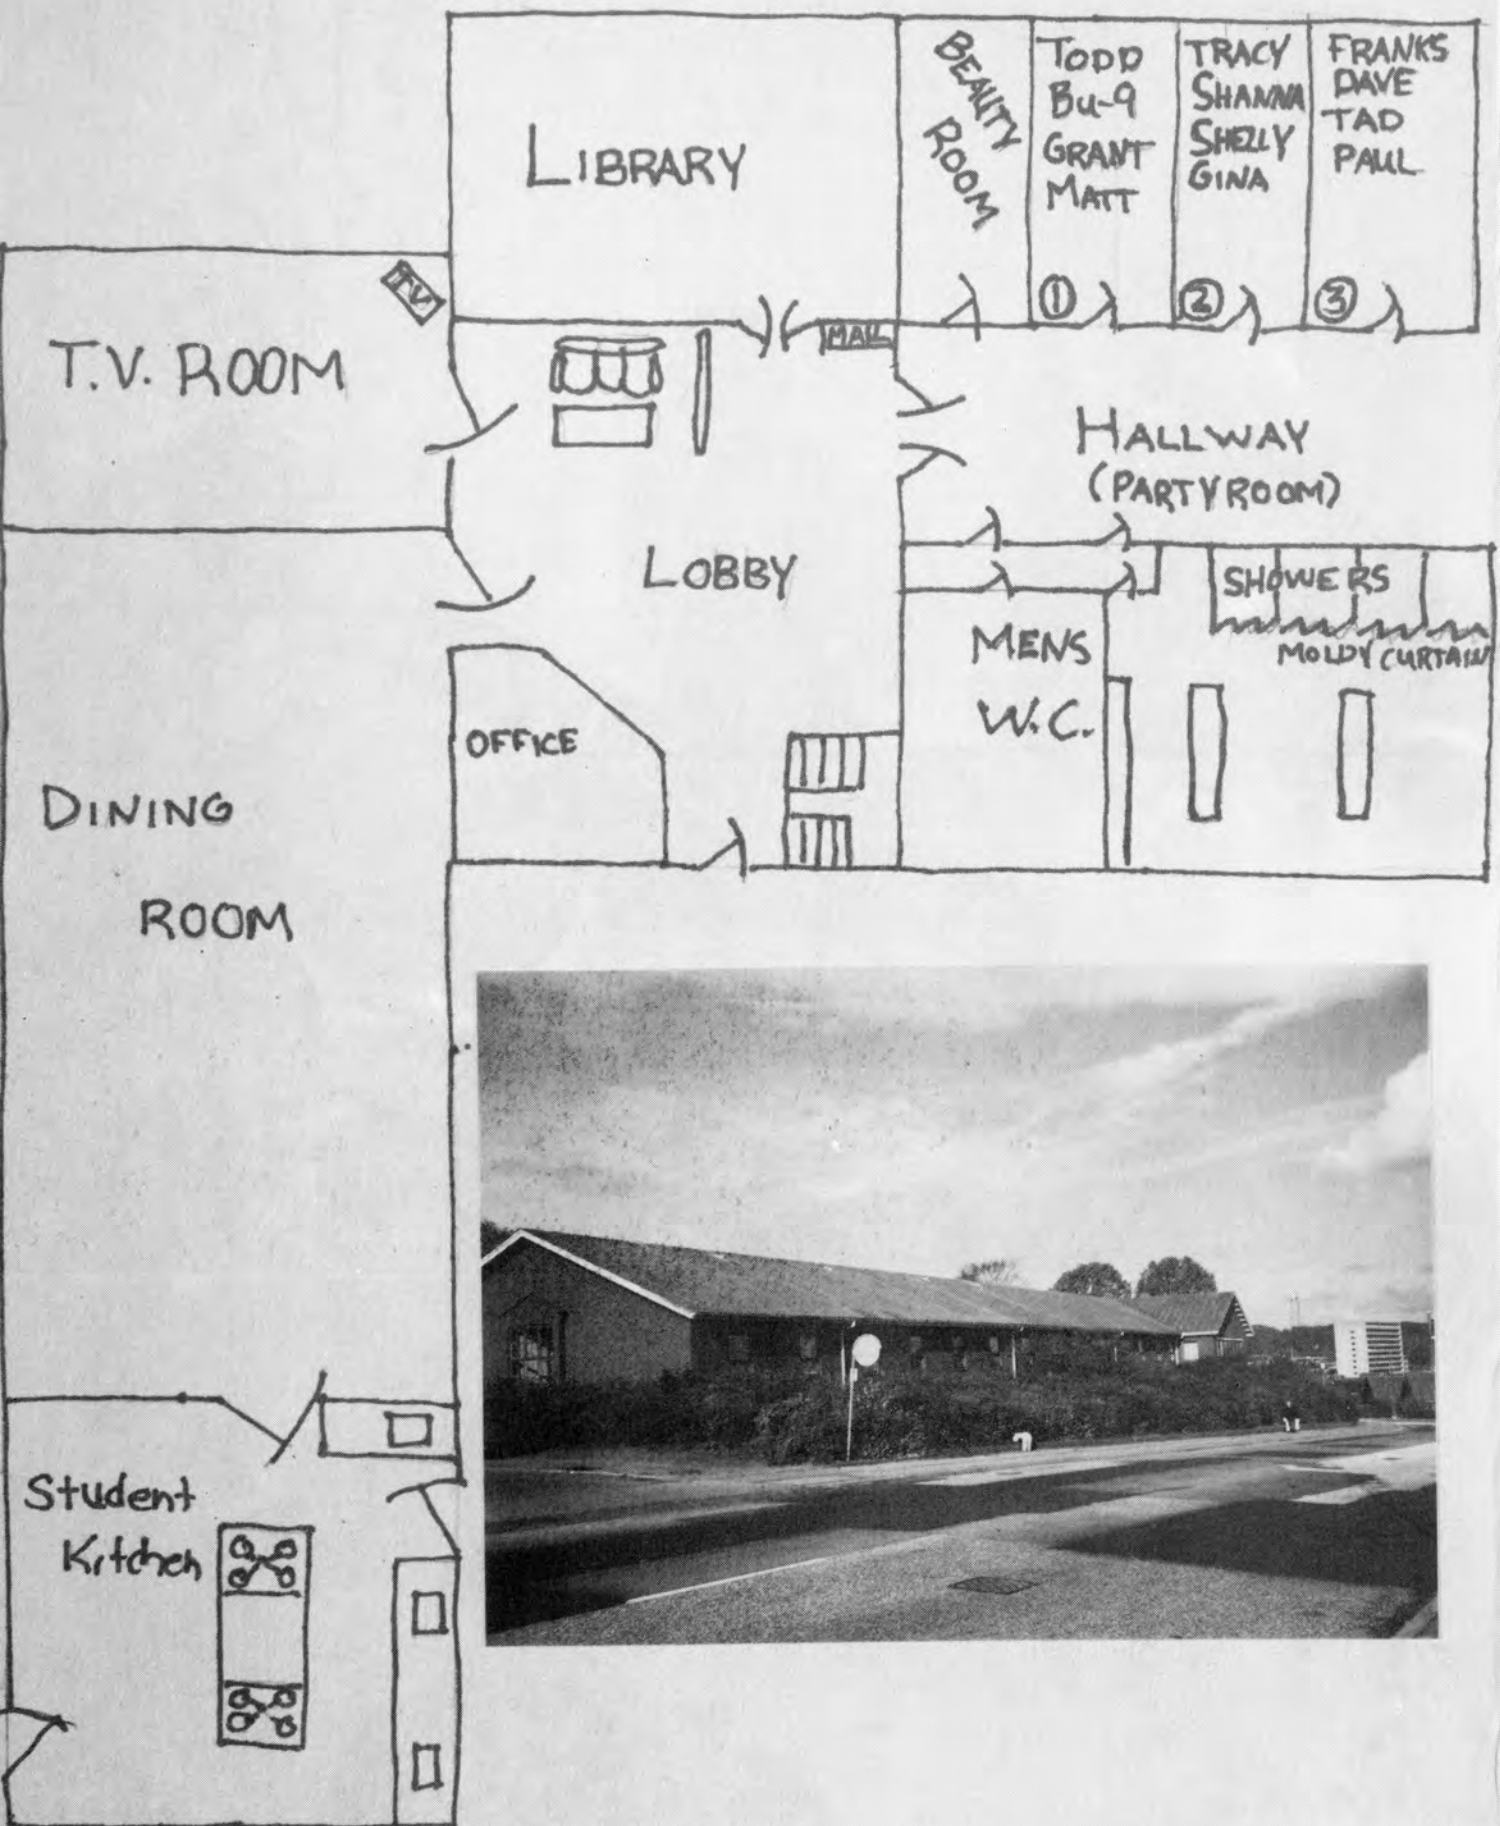 LIBRARY
BEAUTY
ROOM
TODD
Bu-9
GRANT
MATT
①
TRACY
SHANNA
SHELLY
GINA
②
FRANKS
DAVE
TAD
PAUL
③
TV
T.V. ROOM
MAIL
HALLWAY
(PARTY ROOM)
LOBBY
SHOWERS
MOLDY CURTAIN
MENS
W.C.
OFFICE
DINING
ROOM
Student
Kitchen